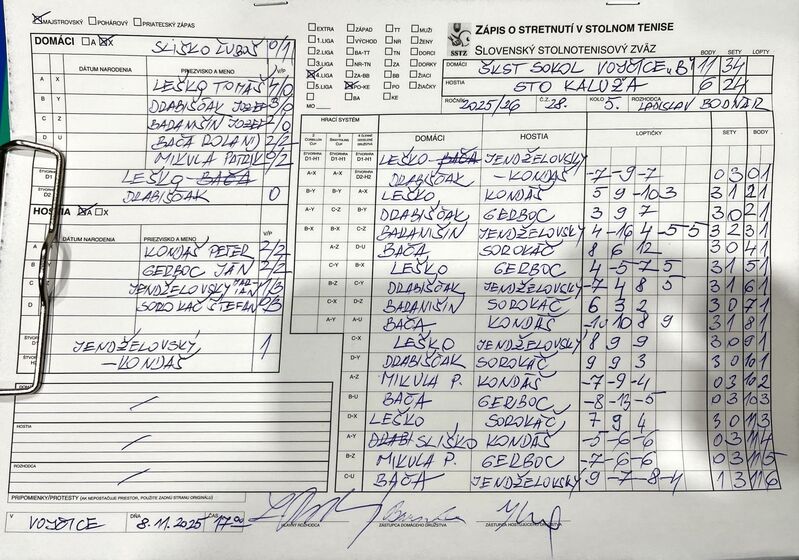 MAJSTROVSKÝ POHÁROVÝ PRIATEĽSKÝ ZÁPAS
DOMÁCI A X SLIŠKO ĽUBOŠ 0/1
DÁTUM NARODENIA PRIEZVISKO A MENO V/P
A X LEŠKO TOMÁŠ 4/0
B Y DRABIŠČAK JOZEF 3/0
C Z BARANIŠIN JOZEF 2/0
D U BAČA ROLAND 2/2
MIKULA PATRIK 0/2
ŠTVORHRA D1 LEŠKO - BAČA
ŠTVORHRA D2 DRABIŠČAK 0
HOSTIA A X
DÁTUM NARODENIA PRIEZVISKO A MENO V/P
A KONDÁŠ PETER 2/2
B GERBOC JÁN 2/2
C JENDŽELOVSKÝ MARTIAN 1/3
D SOROKÁČ ŠTEFAN 0/3
JENDŽELOVSKÝ 1
- KONDÁŠ
DOMÁCI
HOSTIA
ROZHODCA
PRIPOMIENKY/PROTESTY (AK NEPOSTAČUJE PRIESTOR, POUŽITE ZADNÚ STRANU ORIGINÁLU)
V VOJČICE DŇA 8.11.2025 ČAS 17:00
HLAVNÝ ROZHODCA ZÁSTUPCA DOMÁCEHO DRUŽSTVA ZÁSTUPCA HOSŤUJÚCEHO DRUŽSTVA
EXTRA ZÁPAD TT MUŽI
1.LIGA VÝCHOD NR ŽENY
2.LIGA BA-TT ZA DORCI
3.LIGA NR-TN ZA DORKY
4.LIGA ZA-BB BB ŽIACI
5.LIGA PO-KE PO ŽIAČKY
MO BA KE
SSTZ
ZÁPIS O STRETNUTÍ V STOLNOM TENISE
SLOVENSKÝ STOLNOTENISOVÝ ZVÄZ
BODY SETY LOPTY
DOMÁCI ŠKST SOKOL VOJČICE "B" 11 34
HOSTIA STO KALUŽA 6 24
ROČNÍK 2025/26 Č.Z. 28. KOLO 5. ROZHODCA LADISLAV BODNÁR
HRACÍ SYSTÉM DOMÁCI HOSTIA LOPTIČKY SETY BODY
LEŠKO - BAČA JENDŽELOVSKÝ
DRABIŠČAK - KONDÁŠ -7 -9 -7 0 3 0 1
LEŠKO KONDÁŠ 5 9 -10 3 3 1 2 1
DRABIŠČAK GERBOC 3 9 7 3 0 2 1
BARANIŠIN JENDŽELOVSKÝ 4 -16 4 -5 5 3 2 3 1
BAČA SOROKÁČ 8 6 12 3 0 4 1
LEŠKO GERBOC 4 -5 7 5 3 1 5 1
DRABIŠČAK JENDŽELOVSKÝ -7 4 8 5 3 1 6 1
BARANIŠIN SOROKÁČ 6 3 2 3 0 7 1
BAČA KONDÁŠ -10 10 8 9 3 1 8 1
LEŠKO JENDŽELOVSKÝ 8 9 9 3 0 9 1
DRABIŠČAK SOROKÁČ 9 9 3 3 0 10 1
MIKULA P. KONDÁŠ -7 -9 -4 0 3 10 2
BAČA GERBOC -8 -13 -5 0 3 10 3
LEŠKO SOROKÁČ 7 9 4 3 0 11 3
DRABI SLIŠKO KONDÁŠ -5 -6 -6 0 3 11 4
MIKULA P. GERBOC -7 -6 -6 0 3 11 5
BAČA JENDŽELOVSKÝ 9 -7 -8 -4 1 3 11 6